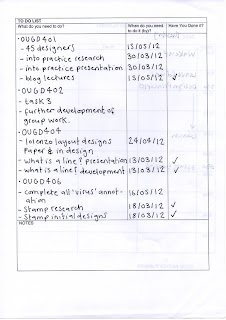 TO DO LIST
What do you need to do? When do you need to do it (by)? Have You Done it?
· OUGD401
- 45 designers 15/05/12
- into practice research 30/03/12
- into practice presentation 30/03/12
- blog lectures 15/05/12 ✓
· OUGD402
- task 3
- further development of
group work.
· OUGD404
- 10lenzo layout designs 24/04/12
Paper & in design
- what is a line? presentation 13/03/12 ✓
- what is a line? development 13/03/12 ✓
· OUGD406
- complete all 'virus' annot- 16/05/12
ation
- Stamp research 18/03/12 ✓
- Stamp initial designs 18/03/12 ✓
NOTES